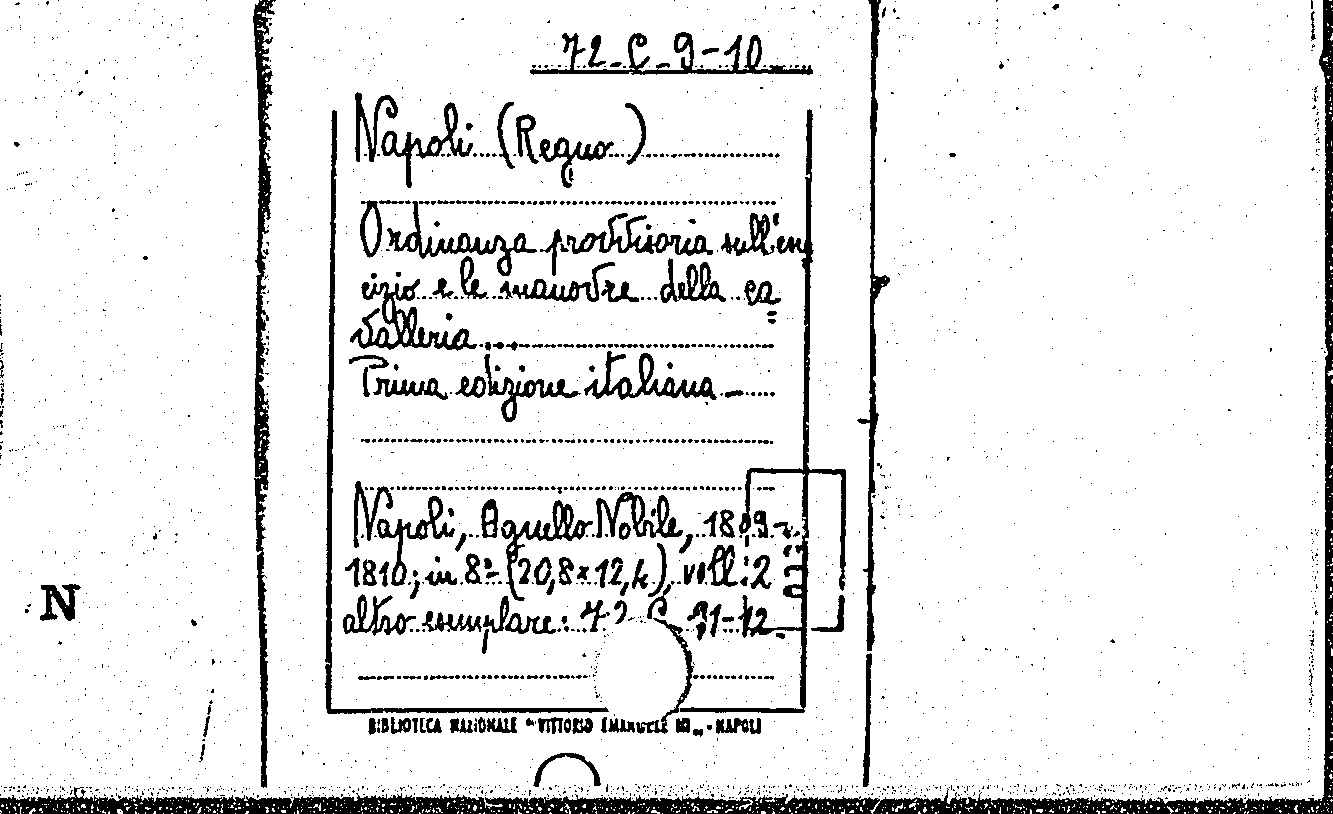 72_C_9-10
Napoli (Regno)
Ordinanza provvisoria sull'eser
cizio e le manovre della ca
=
valleria...
Prima edizione italiana _
Napoli, Agnello Nobile, 1809-
1810; in 8º- (20,8x12,4), voll: 2
altro esemplare: 72 C 11-12.
N
BIBLIOTECA NAZIONALE "VITTORIO EMANUELE III„ - NAPOLI